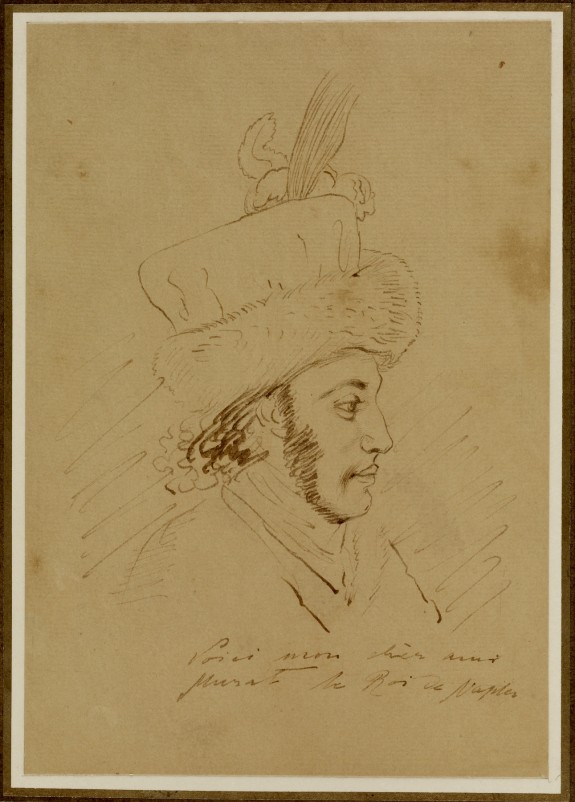 Voici mon chèr ami
Murat le Roi de Naples